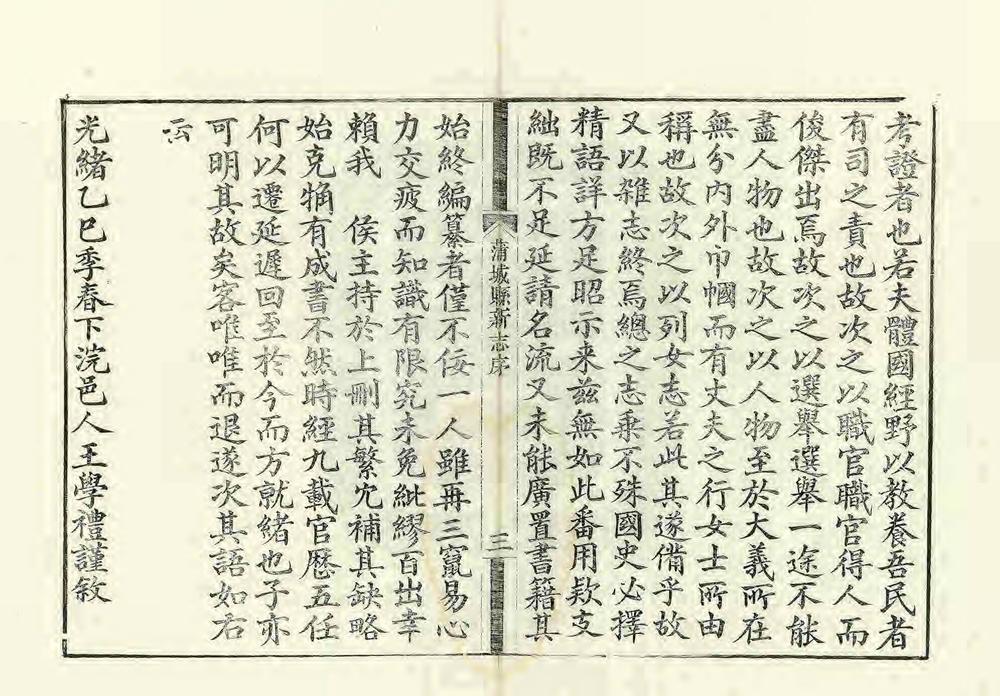 考證者也若夫體國經野以教養吾民者
有司之責也故次之以職官職官得人而
俊傑出焉故次之以選舉選舉一途不能
盡人物也故次之以人物至於大義所在
無分內外巾幗而有丈夫之行女士所由
稱也故次之以列女志若此其遂備乎故
又以雜志終焉總之志乘不殊國史必擇
精語詳方足昭示來兹無如此番用欵支
絀既不足延請名流又未能廣置書籍其
蒲城縣新志序
三
始終編纂者僅不佞一人雖再三竄易心
力交疲而知識有限究未免紕繆百出幸
賴我 侯主持於上刪其繁冗補其缺略
始克觕有成書不然時經九載官歷五任
何以遷延遲回至於今而方就緒也子亦
可明其故矣客唯唯而退遂次其語如右
云
光緒乙巳季春下浣邑人王學禮謹敘